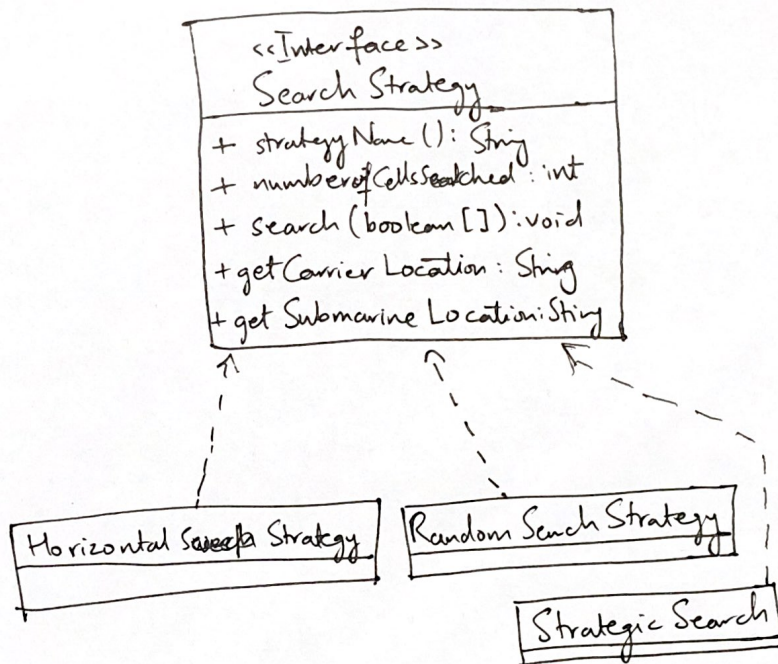 <<Interface>>
Search Strategy
+ strategyName(): String
+ numberofCellsSearched: int
+ search(boolean[]):void
+ getCarrier Location: String
+ get Submarine Location:Sting
Horizontal Sweep Strategy
Random Search Strategy
Strategic Search